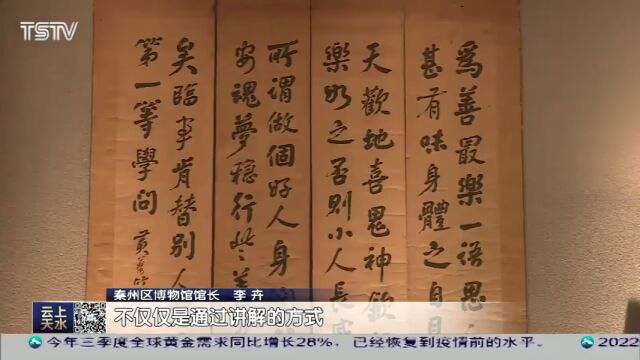 TSTV
為善最樂一語思
甚有味身體之自
天歡地喜鬼神欽
樂如之否則小人長
所謂做個好人身
安魂夢穩行些
矣臨事肯替別人
第一等學問
云上
天水
秦州区博物馆馆长 李卉
不仅仅是通过讲解的方式
今年三季度全球黄金需求同比增长28%,已经恢复到疫情前的水平。
2022